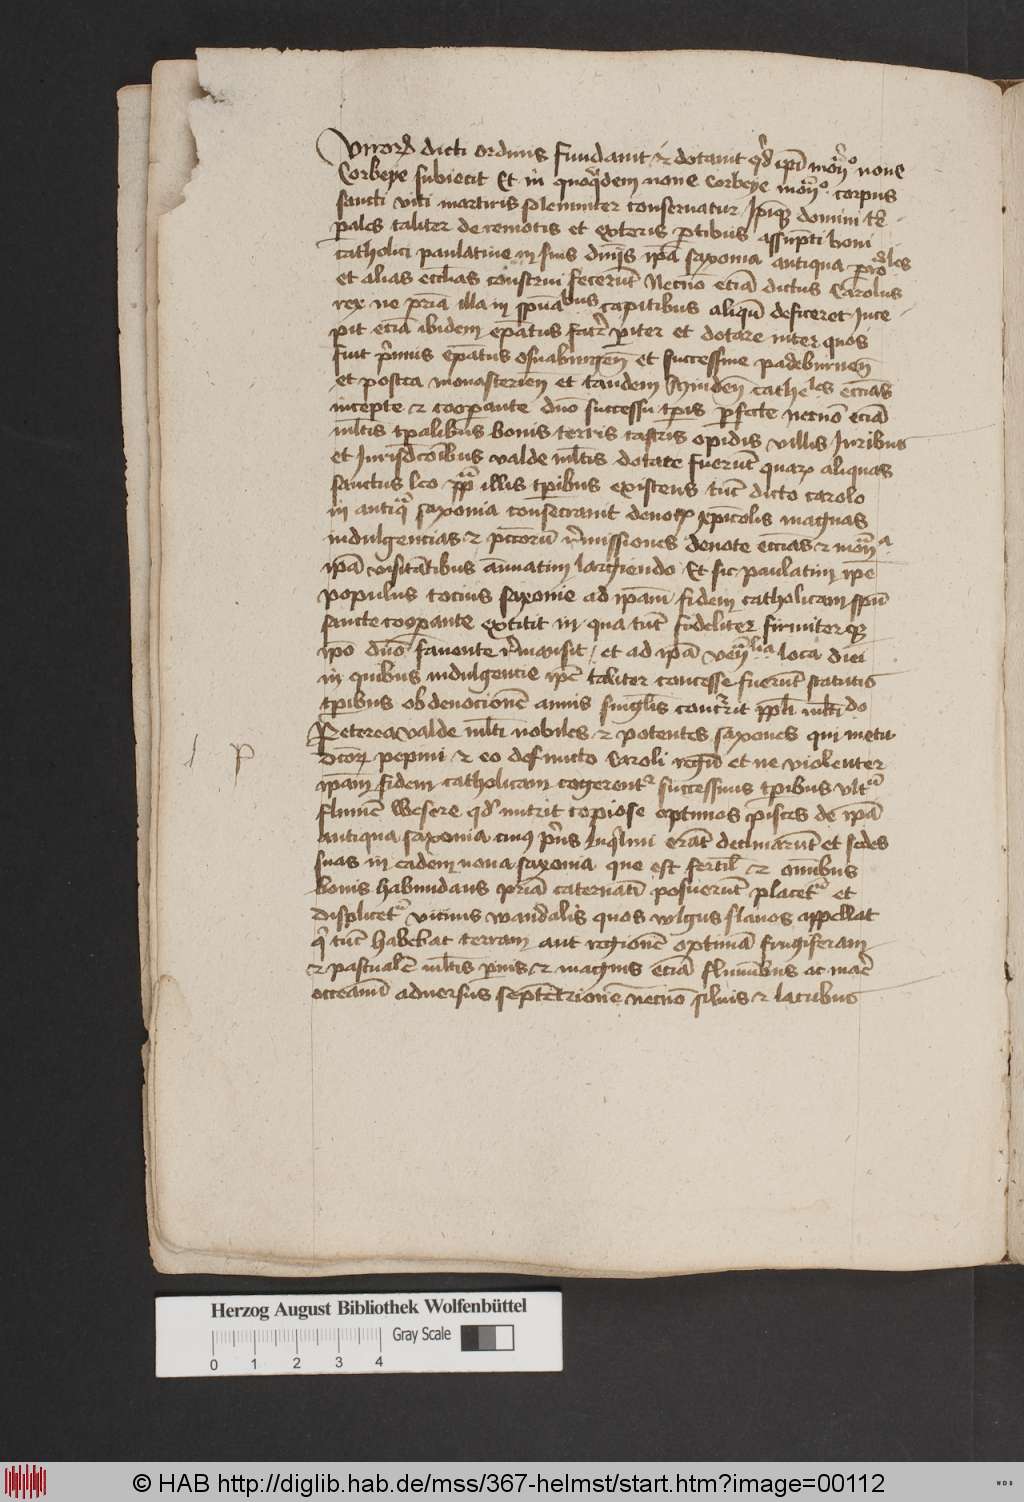 Virorum dicti ordinis fundauit & dotauit qd ipi mon° noue
Corbeye subiecit Et in quoqdem noue Corbeye mon° corpus
sancti viti martiris solemniter conseruatur Ipiqz domini te
pales taliter de remotis et exteris ptibus assupti boni
catholici paulatiue in suis dnijs ipa saxonia antiqua
et alias ecclias construi fecerut Necno etia dictus Carolus
rex ne pria illa in spualibus capitibus aliqu deficeret Ince
pit etia ibidem epatus facere piter et dotare inter quos
fuit primus epatus osnaburgen et successiue padeburnen
et postea monasterien et tandem Mynden cathe les ecclias
incepte & cooperante duo successu tpis pfecte necno etia
mltis tpalibus bonis terris castris opidis villis Iuribus
et Iurisdcoibus valde mltis dotate fuerut quarz aliquas
sanctus leo ppa illis tpibus existens tuc dicto carolo
in antiqua saxonia consecrauit deuotz xpicolis magnas
indulgencias & pctorum remissiones deuote ecclias & mona
ipa visitatibus annuatim largiendo Et sic paulatim ipe
populus tocius saxonie ad ipam fidem catholicam spu
sancto coopante extitit in qua tuc fideliter firmiterqz
ipo duo fauente remansit / et ad ipa loca diei
in quibus indulgentie ipe taliter concesse fuerut statutis
tpibus ob deuocione annis singlis concurrit ppli multido
Preterea valde mlti nobiles & potentes saxones qui metu
dcorz pepini & eo defuncto Caroli regu et ne violenter
ipam fidem catholicam cogerent successiuis tpibus vltra
flume Wesere qd nutrit copiose optimos pisces de ipa
antiqua saxonia cuius prius inqlini erat declinarut et sedes
suas in eadem noua saxonia que est fertil & omibus
bonis habundans pria caternati posuerut placet et
displicet vicinis wandalis quos wlgus slauos appellat
q tuc habebat terram aut regione optima frugiferam
& pascuale mltis pruis & magnis etia fluuibus ac mare
occeanu aduersus septetrione necno siluis & lacubus
p
Herzog August Bibliothek Wolfenbüttel
Gray Scale
0 1 2 3 4
© HAB http://diglib.hab.de/mss/367-helmst/start.htm?image=00112